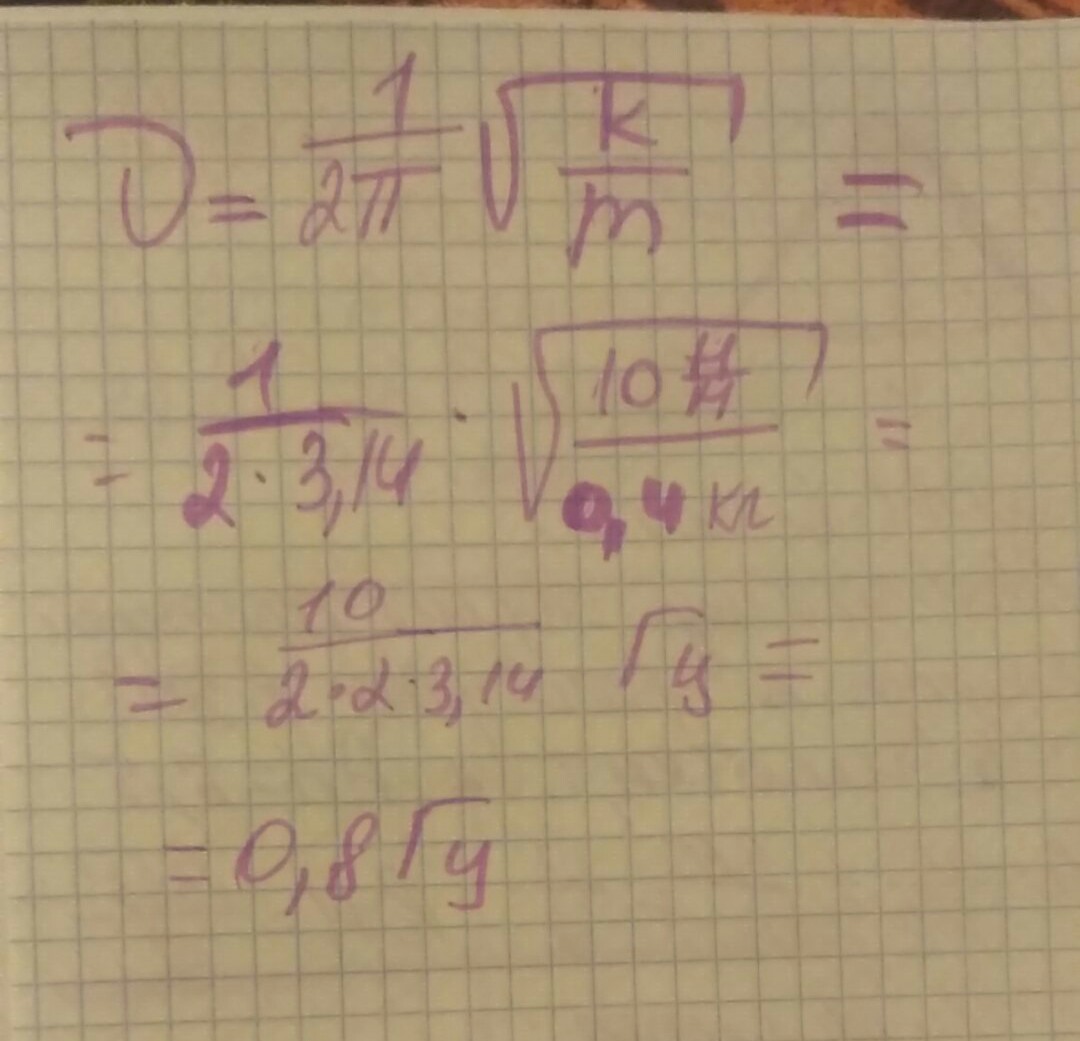 ν = 1/(2π) √(k/m) =
= 1/(2 · 3,14) · √(10 Н/М / 0,4 кг) =
= 10/(2·2·3,14) Гц =
= 0,8 Гц